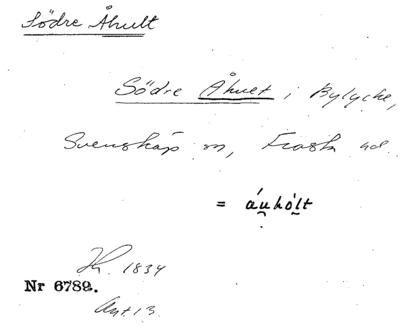 Södre Åhult
Södre Åhult i Bylycke,
Svenskáp sn, Frosta hd.
= áu̯hól̥t
1834
Nr 6789.
Ant. 13